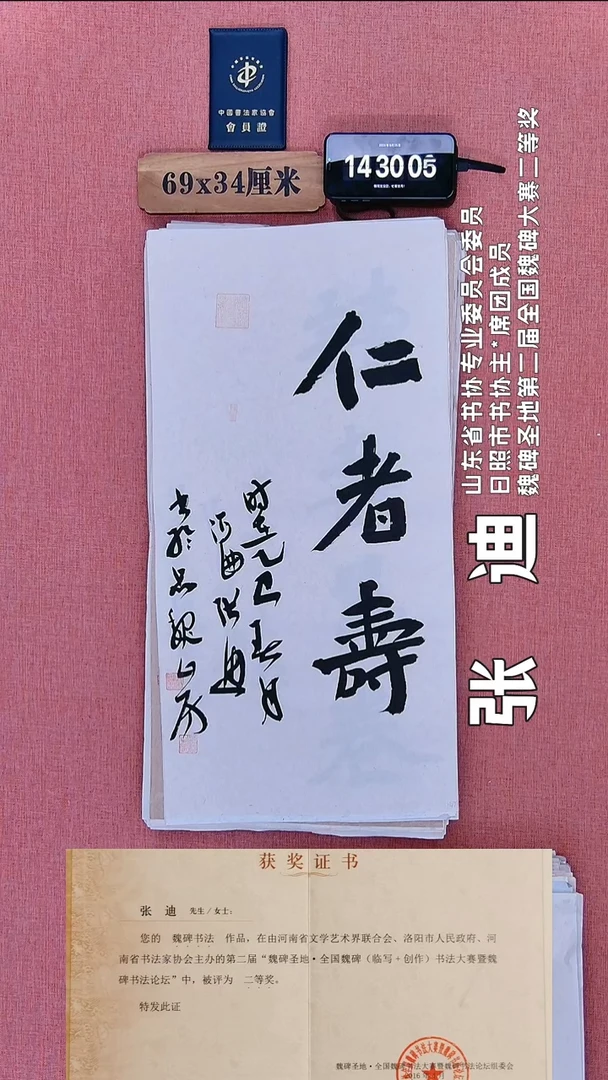 中國書法家協會
會員證
69x34厘米
14 30 05
山东省书协专业委员会委员
日照市书协主*席团成员
魏碑圣地第二届全国魏碑大赛二等奖
张 迪
仁者壽
时在乙巳春月
张迪
获奖证书
张 迪 先生/女士:
您的 魏碑书法 作品，在由河南省文学艺术界联合会、洛阳市人民政府、河
南省书法家协会主办的第二届“魏碑圣地·全国魏碑（临写+创作）书法大赛暨魏
碑书法论坛”中，被评为 二等奖。
特发此证
魏碑圣地·全国魏碑书法大赛暨魏碑书法论坛组委会